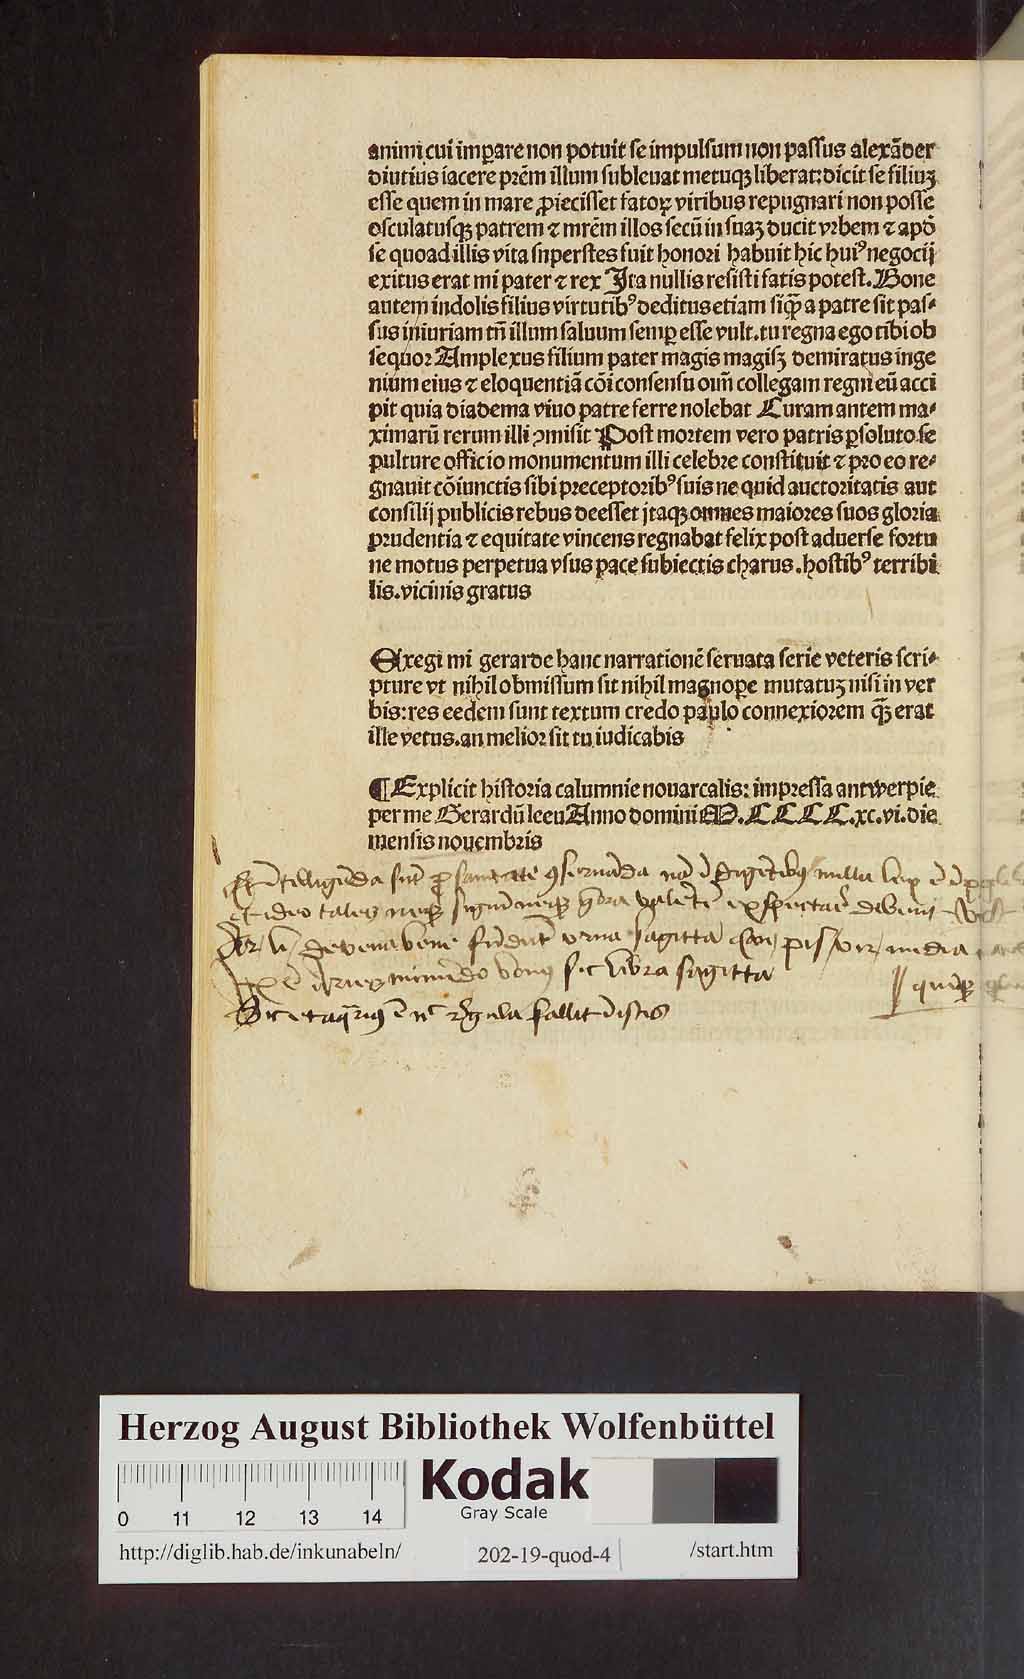 animi cui imꝑare non potuit se impulsum non passus alexãder
diutius iacere prẽm illum subleuat metuqꝫ liberat: dicit se filiuꝫ
esse quem in mare ꝓiecisset fatoꝝ viribus repugnari non posse
osculatusqꝫ patrem ⁊ mrẽm illos secũ in suaꝫ ducit vrbem ⁊ apđ
se quoad illis vita snperstes fuit honori habuit hic huiꝰ negocij
exitus erat mi pater ⁊ rex Ita nullis resisti fatis potest. Bone
autem indolis filius virtutibꝰ deditus etiam siqͣ a patre sit pas⸗
sus iniuriam tñ illum saluum semꝑ esse vult. tu regna ego tibi ob
sequor Amplexus filium pater magis magisꝫ demiratus inge
nium eius ⁊ eloquentiã cõi consensu oım̃ collegam regni eũ acci
pit quia diadema viuo patre ferre nolebat Curam antem ma⸗
ximarũ rerum illi ꝯmisit Post mortem vero patris ꝑsoluto se
pulture officio monumentum illi celebre constituit ⁊ pro eo re⸗
gnauit cõiunctis sibi preceptoribꝰ suis ne quid auctoritatis aut
consilij publicis rebus deesset jtaqꝫ omnes maiores suos gloria
prudentia ⁊ equitate vincens regnabat felix post aduerse fortu
ne motus perpetua vsus pace subiectis charus. hostibꝰ terribi
lis. vicinis gratus
Exegi mi gerarde hanc narrationẽ seruata serie veteris scri⸗
pture vt nihil obmissum sit nihil magnoꝑe mutatuꝫ nisi in ver
bis: res eedem sunt textum credo paulo connexiorem qͣꝫ erat
ille vetus. an melior sit tu iudicabis
¶ Explicit historia calumnie nouarcalis: impressa antwerpie
per me Gerardũ leeu Anno domini M.CCCC.xc.vi. die
mensis nouembris
sunt sanitate
et ideo tales
bene vrna sagitta pis vir media
bonꝰ sic libra sagitta
regula fallit
Herzog August Bibliothek Wolfenbüttel
Kodak
Gray Scale
0 11 12 13 14
http://diglib.hab.de/inkunabeln/ 202-19-quod-4 /start.htm